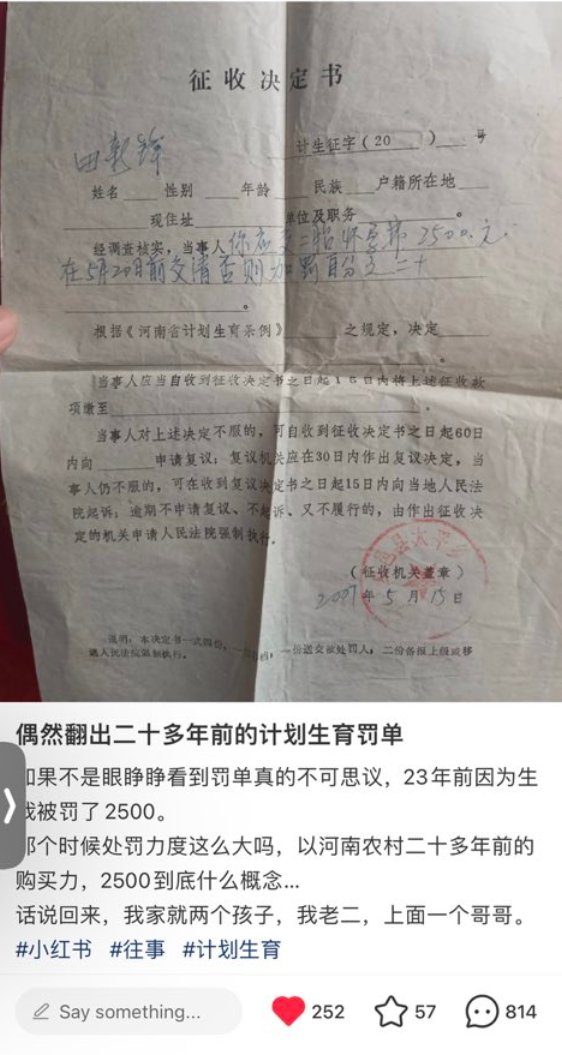 征收决定书
计生征字(20 ) 号
姓名 性别 年龄 民族 户籍所在地
现住址 单位及职务 。
经调查核实，当事人你应交二胎 2500.元
在5月20日前交清否则加罚百分之二十
。
根据《河南省计划生育条例》 之规定，决定
。
当事人应当自收到征收决定书之日起15日内将上述征收款
项缴至 。
当事人对上述决定不服的，可自收到征收决定书之日起60日
内向 申请复议；复议机关应在30日内作出复议决定，当
事人仍不服的，可在收到复议决定书之日起15日内向当地人民法
院起诉；逾期不申请复议、不起诉、又不履行的，由作出征收决
定的机关申请人民法院强制执行。
县太平乡
(征收机关盖章)
年5月15日
说明：本决定书一式四份，一份存档，一份送交被处罚人，二份备报上级或移
送人民法院强制执行。
偶然翻出二十多年前的计划生育罚单
如果不是眼睁睁看到罚单真的不可思议，23年前因为生
我被罚了2500。
那个时候处罚力度这么大吗，以河南农村二十多年前的
购买力，2500到底什么概念...
话说回来，我家就两个孩子，我老二，上面一个哥哥。
#小红书 #往事 #计划生育
Say something... 252 57 814